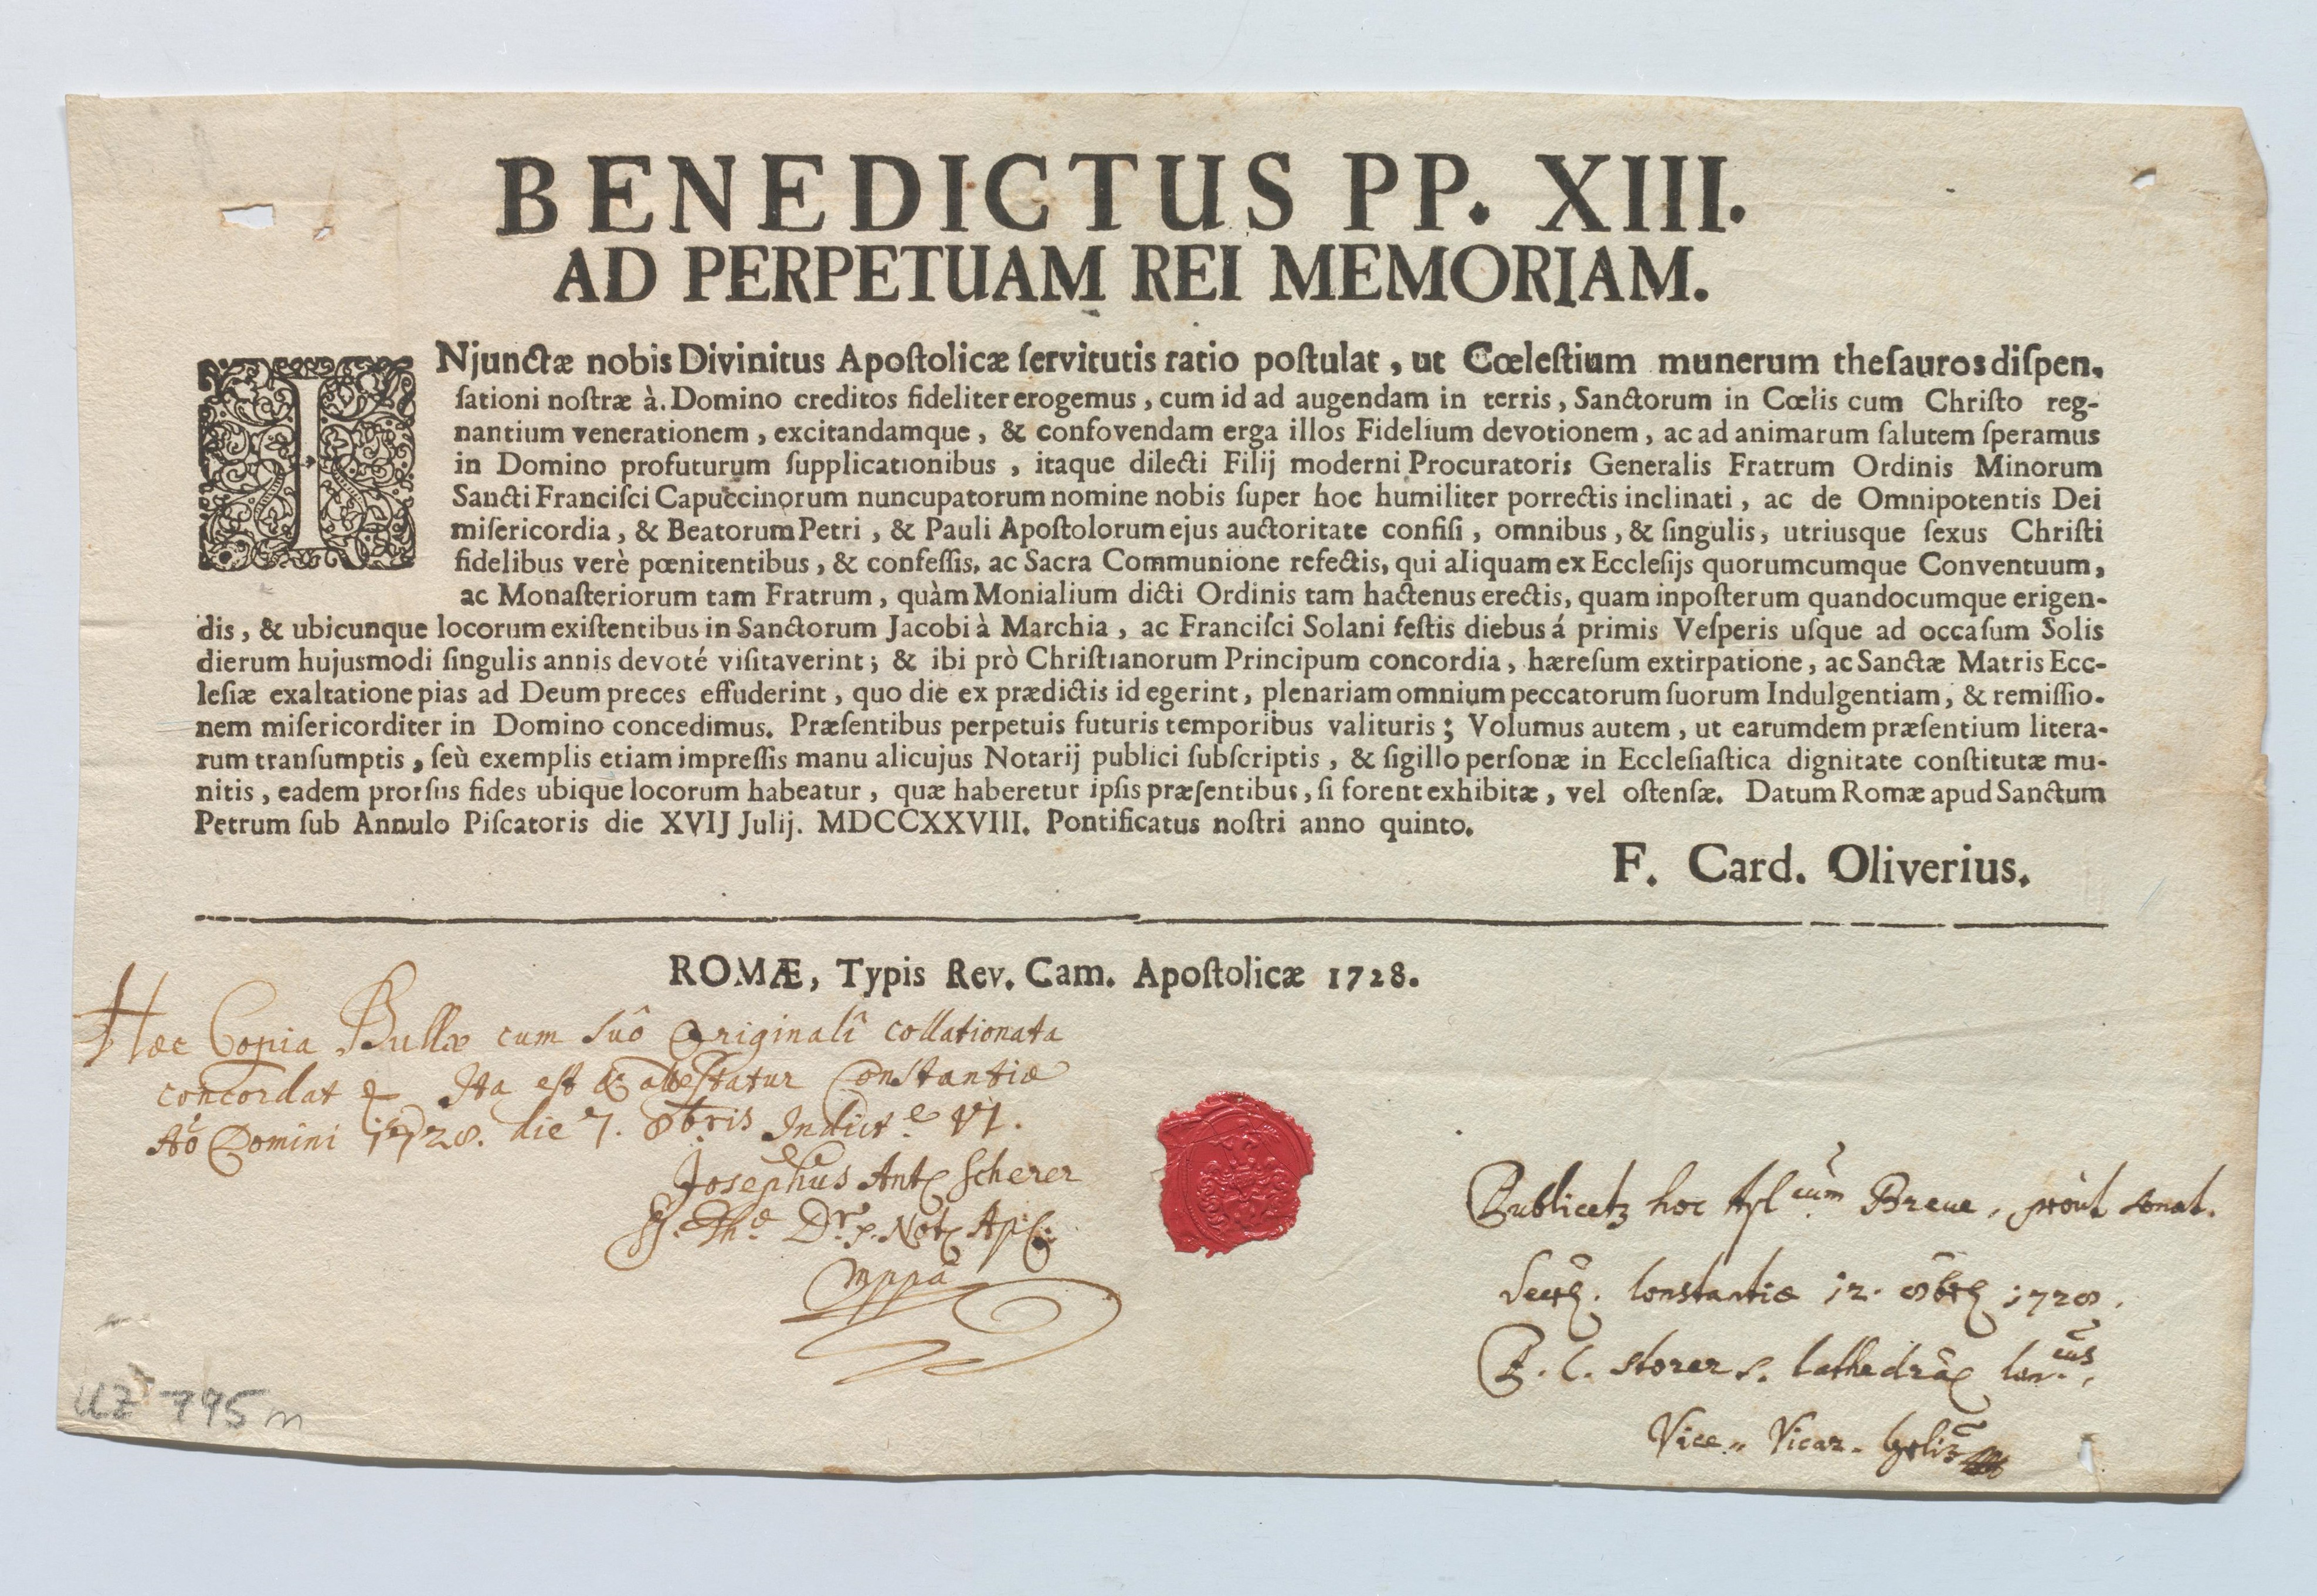 BENEDICTUS PP. XIII.
AD PERPETUAM REI MEMORIAM.
INjunctæ nobis Divinitus Apoſtolicæ ſervitutis ratio poſtulat, ut Cœleſtium munerum theſauros diſpen.
ſationi noſtræ à. Domino creditos fideliter erogemus, cum id ad augendam in terris, Sanctorum in Cœlis cum Chriſto reg-
nantium venerationem, excitandamque, & confovendam erga illos Fidelium devotionem, ac ad animarum ſalutem ſperamus
in Domino profuturum ſupplicationibus, itaque dilecti Filij moderni Procuratoris Generalis Fratrum Ordinis Minorum
Sancti Franciſci Capuccinorum nuncupatorum nomine nobis ſuper hoc humiliter porrectis inclinati, ac de Omnipotentis Dei
miſericordia, & Beatorum Petri, & Pauli Apoſtolorum ejus auctoritate confiſi, omnibus, & ſingulis, utriusque ſexus Chriſti
fidelibus verè pœnitentibus, & confeſſis, ac Sacra Communione refectis, qui aliquam ex Eccleſijs quorumcumque Conventuum,
ac Monaſteriorum tam Fratrum, quàm Monialium dicti Ordinis tam hactenus erectis, quam inpoſterum quandocumque erigen-
dis, & ubicunque locorum exiſtentibus in Sanctorum Jacobi à Marchia, ac Franciſci Solani feſtis diebus á primis Veſperis uſque ad occaſum Solis
dierum hujusmodi ſingulis annis devoté viſitaverint; & ibi prò Chriſtianorum Principum concordia, hæreſum extirpatione, ac Sanctæ Matris Ecc-
leſiæ exaltatione pias ad Deum preces effuderint, quo die ex prædictis id egerint, plenariam omnium peccatorum ſuorum Indulgentiam, & remiſſio-
nem miſericorditer in Domino concedimus. Præſentibus perpetuis futuris temporibus valituris; Volumus autem, ut earumdem præſentium litera-
rum tranſumptis, ſeù exemplis etiam impreſſis manu alicujus Notarij publici ſubſcriptis, & ſigillo perſonæ in Eccleſiaſtica dignitate conſtitutæ mu-
nitis, eadem prorſus fides ubique locorum habeatur, quæ haberetur ipſis præſentibus, ſi forent exhibitæ, vel oſtenſæ. Datum Romæ apud Sanctum
Petrum ſub Annulo Piſcatoris die XVIJ Julij. MDCCXXVIII. Pontificatus noſtri anno quinto.
F. Card. Oliverius.
ROMÆ, Typis Rev. Cam. Apoſtolicæ 1728.
Hæc Copia Bullæ cum suô Originalî collationata
concordat Ita est & attestatur Constantiæ
Aō Domini 1728. die 7. 8bris Indict.e VI.
Josephus Ant Scherer
Dr. Not Ap
mppa
Publicetz hoc Apl.cum Breue, prout sonat.
Constantiæ 12. 8br 1728.
Storer Cathedral Can.cus,
Vice- Vicar. Gglis
UZT 795 m